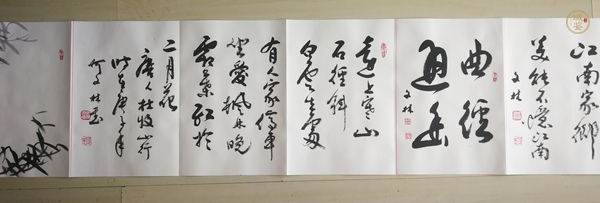 江南家鄉
美能不憶江南
文林
曲徑
通幽
文林
遠上寒山
石徑斜
白雲生處
有人家停車
坐愛楓林晚
霜葉紅於
二月花
唐人杜牧山行